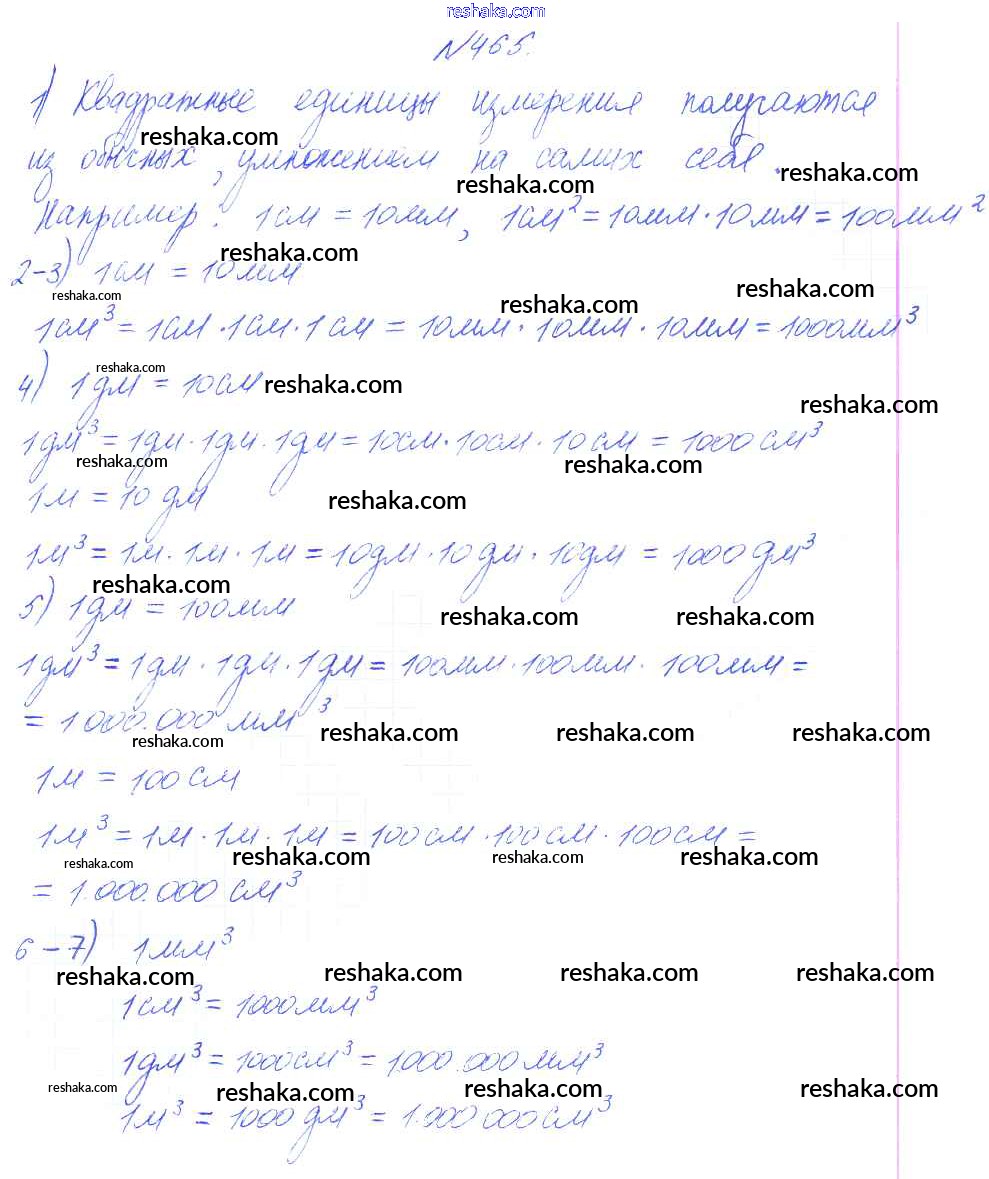 reshaka.com
№465.
1) Квадратные единицы измерения получаются
reshaka.com
из обычных, умножением на самих себя.
reshaka.com reshaka.com
Например: 1см = 10мм, 1см² = 10мм · 10мм = 100мм²
reshaka.com
2-3) 1см = 10мм
reshaka.com reshaka.com reshaka.com
1см³ = 1см · 1см · 1см = 10мм · 10мм · 10мм = 1000мм³
reshaka.com
4) 1дм = 10см
reshaka.com reshaka.com
1дм³ = 1дм · 1дм · 1дм = 10см · 10см · 10см = 1000см³
reshaka.com reshaka.com
1м = 10 дм
reshaka.com
1м³ = 1м · 1м · 1м = 10дм · 10дм · 10дм = 1000 дм³
reshaka.com
5) 1дм = 100мм
reshaka.com reshaka.com
1дм³ = 1дм · 1дм · 1дм = 100мм · 100мм · 100мм =
= 1000.000 мм³
reshaka.com reshaka.com reshaka.com reshaka.com
1м = 100 см
1м³ = 1м · 1м · 1м = 100см · 100см · 100см =
reshaka.com reshaka.com reshaka.com reshaka.com
= 1.000.000 см³
6-7) 1мм³
reshaka.com reshaka.com reshaka.com reshaka.com
1см³ = 1000мм³
1дм³ = 1000см³ = 1000.000мм³
reshaka.com reshaka.com reshaka.com reshaka.com
1м³ = 1000 дм³ = 1.000 000см³